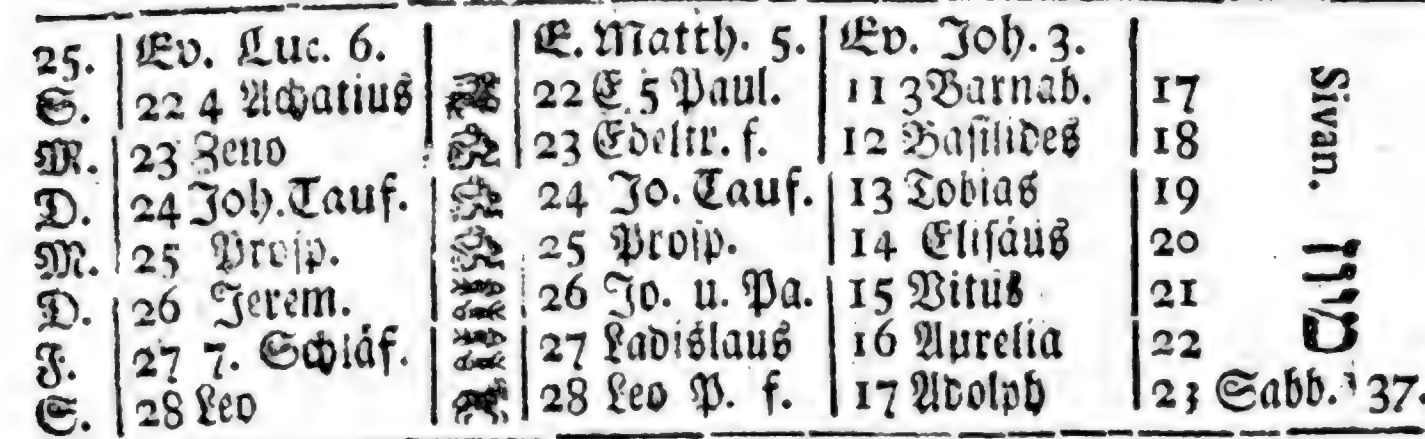 25. Ev. Luc. 6. E. Matth. 5. Ev. Joh. 3.
S. 22 4 Achatius 22 E 5 Paul. 11 3 Barnab. 17
M. 23 Zeno 23 Edeltr. f. 12 Basilides 18
D. 24 Joh. Tauf. 24 Jo. Tauf. 13 Tobias 19
M. 25 Prosp. 25 Prosp. 14 Elisäus 20
D. 26 Jerem. 26 Jo. u. Pa. 15 Vitus 21
F. 27 7. Schläf. 27 Ladislaus 16 Aurelia 22
S. 28 Leo 28 Leo P. f. 17 Adolph 23 Sabb. 37.
Sivan. סיון